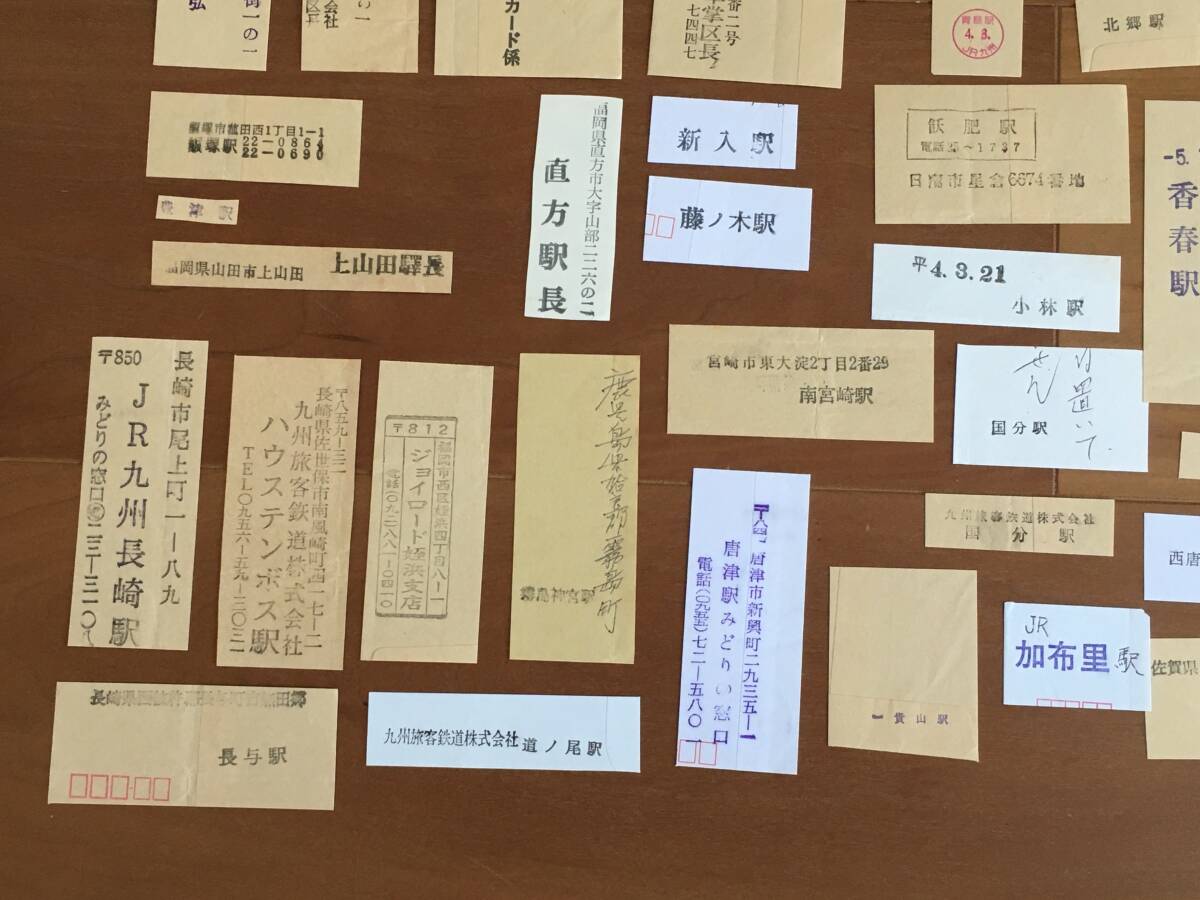 街一の一
弘
会社
の一
カード係
番二号
掌区長
七四四七
青島駅
4.3.
JR九州
北郷駅
飯塚市菰田西1丁目1-1
飯塚駅 22-0864
22-0690
豊津駅
福岡県山田市上山田 上山田驛長
福岡県直方市大字山部二二六の二
直方駅長
新入駅
藤ノ木駅
飫肥駅
電話25～1737
日南市星倉6674番地
平4.3.21
小林駅
-5.
香春駅
〒850 長崎市尾上町一－八九
JR九州長崎駅
みどりの窓口
〒八五九－三二
長崎県佐世保市南風崎町四一七－二
九州旅客鉄道株式会社
ハウステンボス駅
TEL〇九五六－五九－二〇三二
〒812
福岡市西区姪浜四丁目八－一
ジョイロード姪浜支店
電話(〇九二)八八一－〇四一〇
霧島町
霧島神宮駅
宮崎市東大淀2丁目2番29
南宮崎駅
置いて
せん
国分駅
九州旅客鉄道株式会社
国分駅
〒八四七 唐津市新興町二九三五－一
唐津駅みどりの窓口
電話(〇九五五)七二－五八〇一
貴山駅
西唐
JR
加布里駅
佐賀県
長与駅
九州旅客鉄道株式会社 道ノ尾駅